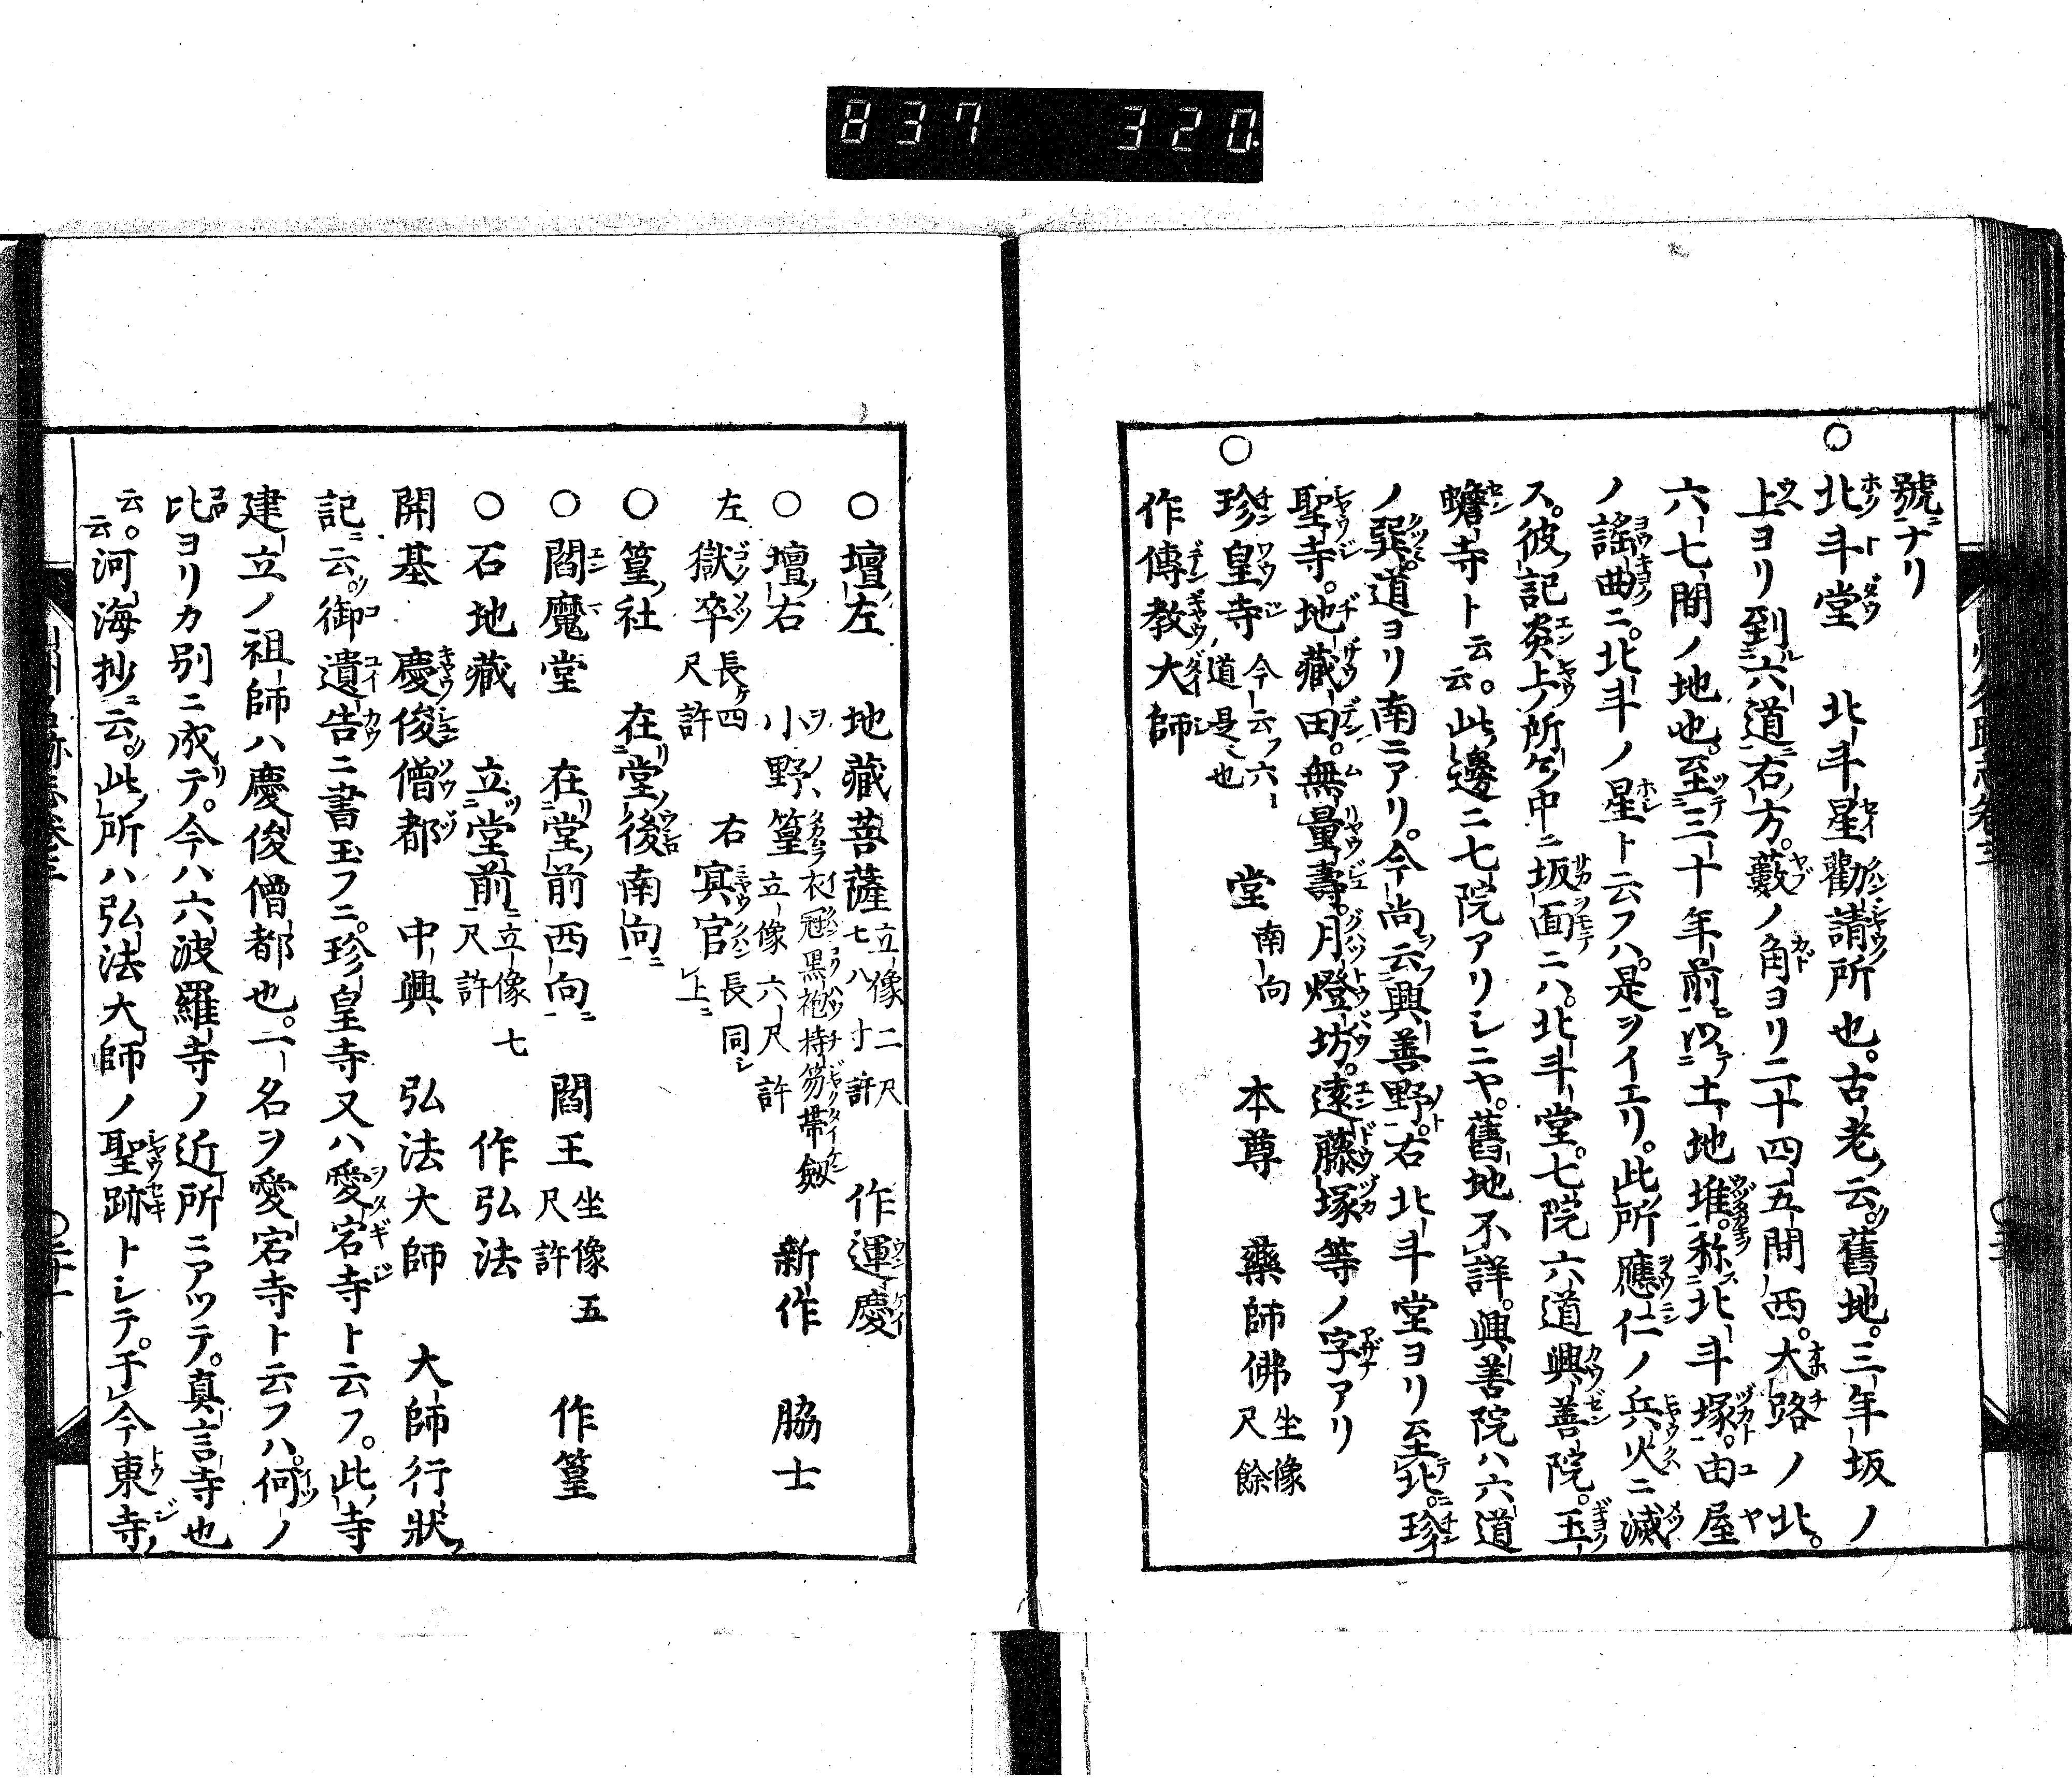 837 320
號ナリ
○北斗堂 北斗星勸請所也。古老云。舊地。三年坂ノ
上ヨリ到六道右方。藪ノ角ヨリ二十四五間西。大路ノ北。
六七間ノ地也。至三十年前以土地堆。称北斗塚。由屋
ノ謡曲ニ。北斗ノ星ト云フハ。是ヲイエリ。此所應仁ノ兵火ニ滅
ス。彼記炎上所々中ニ坂面ニハ。北斗堂。七院六道興善院。玉
蟾寺ト云云。此邊ニ七院アリシニヤ。舊地不詳。興善院ハ六道
ノ巽。道ヨリ南ニアリ。今尚云興善野。右北斗堂ヨリ至北。珍
聖寺。地藏田。無量壽。月燈坊。遠藤塚等ノ字アリ
○珍皇寺 今云フ六道是也 堂 南向 本尊 藥師佛 坐像尺餘
作傳教大師
○壇左 地藏菩薩 立像二尺七八寸許 作運慶
○壇右 小野篁 衣冠黑袍持笏帶劔立像六尺許 新作 脇士
左獄卒 長ケ四尺許 右冥官 長同上
○篁社 在堂後南向
○閻魔堂 在堂前西向 閻王 坐像五尺許 作篁
○石地藏 立堂前 立像七尺許 作弘法
開基 慶俊僧都 中興 弘法大師 大師行狀
記云。御遺告ニ書玉フニ。珍皇寺又ハ愛宕寺ト云フ。此寺
建立ノ祖師ハ慶俊僧都也。二名ヲ愛宕寺ト云フハ。何ノ
比ヨリカ別ニ成テ。今ハ六波羅寺ノ近所ニアツテ。真言寺也
云云。河海抄云。此所ハ弘法大師ノ聖跡トシテ。于今東寺